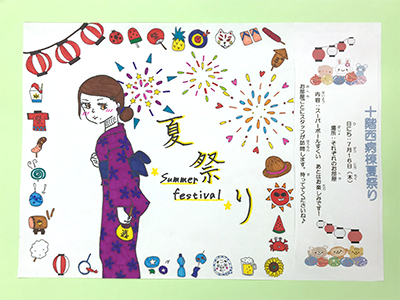 夏祭り
Summer
festival
十階西病棟夏祭り
日にち：7月16日(木)
場所：それぞれのお部屋
内容：スーパーボールすくい あとはお楽しみです！
お部屋ごとにスタッフが訪問します。待っててくださいね♪